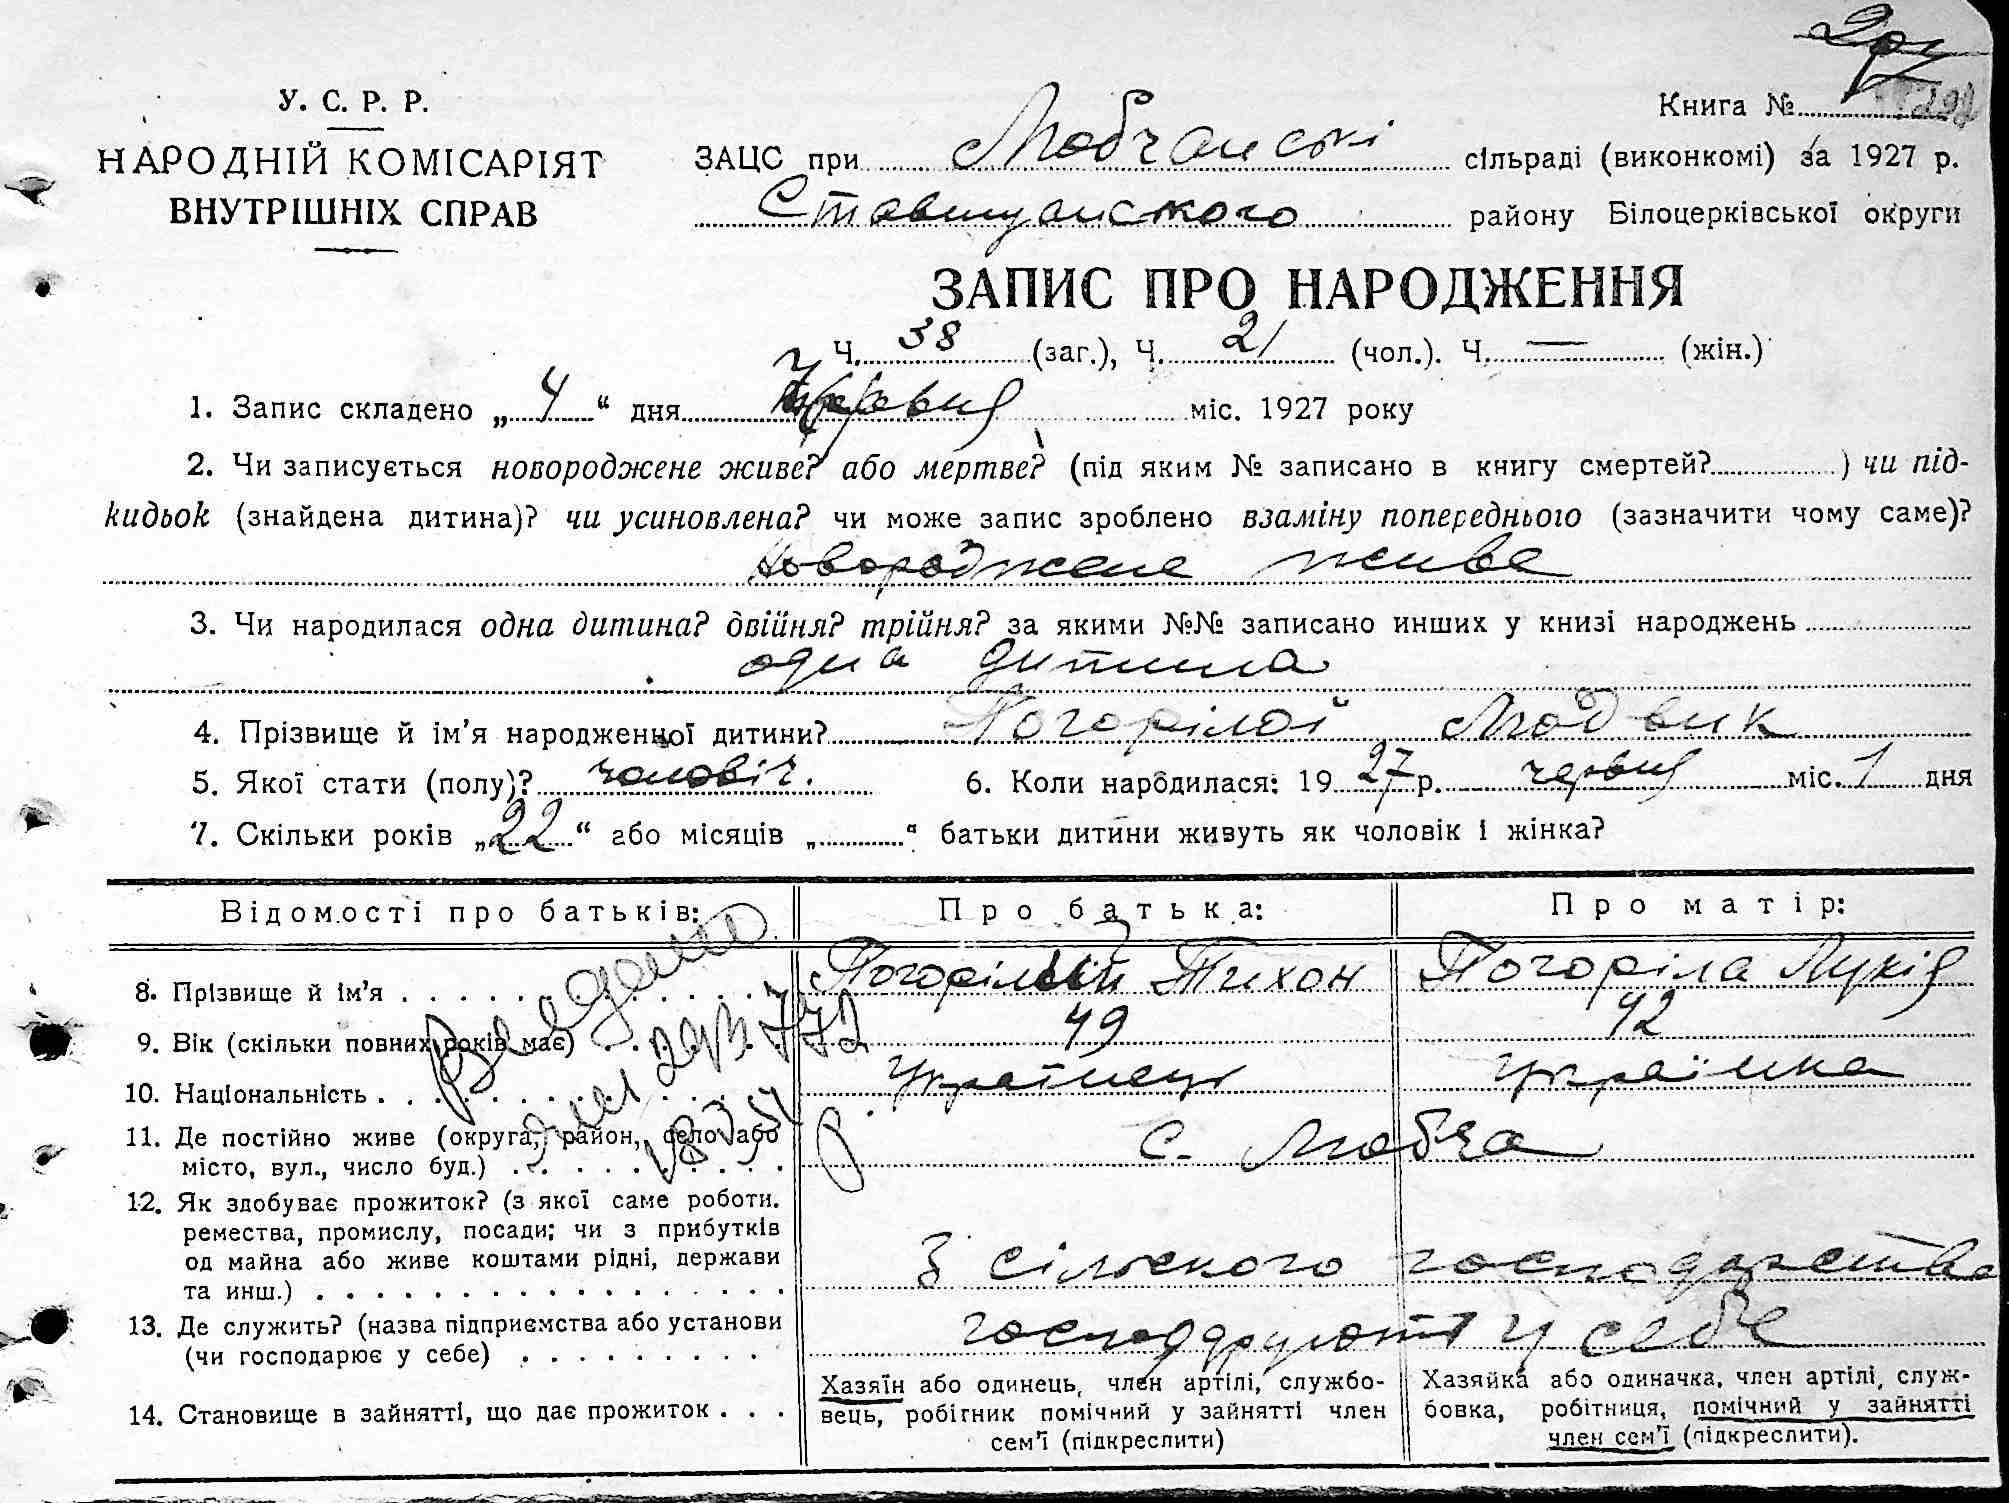 У. С. Р. Р.
НАРОДНІЙ КОМІСАРІЯТ
ВНУТРІШНІХ СПРАВ
Книга №
ЗАЦС при Любчанскі сільраді (виконкомі) за 1927 р.
Ставищанского району Білоцерківської округи
ЗАПИС ПРО НАРОДЖЕННЯ
Ч. 38 (заг.), Ч. 21 (чол.). Ч. — (жін.)
1. Запис складено „ 4 “ дня червня міс. 1927 року
2. Чи записується новороджене живе? або мертве? (під яким № записано в книгу смертей? ) чи під-
кидьок (знайдена дитина)? чи усиновлена? чи може запис зроблено взаміну попереднього (зазначити чому саме)?
новороджене живе
3. Чи народилася одна дитина? двійня? трійня? за якими №№ записано инших у книзі народжень
одна дитина
4. Прізвище й ім’я народженної дитини? Погорілої Людвик
5. Якої стати (полу)? чоловіч. 6. Коли народилася: 19 27 р. червня міс. 1 дня
7. Скільки років „ 22 “ або місяців „ “ батьки дитини живуть як чоловік і жінка?
Відомості про батьків: Про батька: Про матір:
8. Прізвище й ім’я Погорілий Тихон Погоріла Лукія
9. Вік (скільки повних років має) 49 42
10. Національність Українець українка
11. Де постійно живе (округа, район, село або
місто, вул., число буд.) с. Любча
12. Як здобуває прожиток? (з якої саме роботи.
ремества, промислу, посади; чи з прибутків
од майна або живе коштами рідні, держави
та инш.) З сільского господарства
13. Де служить? (назва підприємства або установи
(чи господарює у себе) господарують у себе
14. Становище в зайнятті, що дає прожиток
Хазяїн або одинець, член артілі, службо-
вець, робігник помічний у зайнятті член
сем’ї (підкреслити)
Хазяйка або одиначка, член артілі, служ-
бовка, робітниця, помічний у зайнятті
член сем’ї (підкреслити).